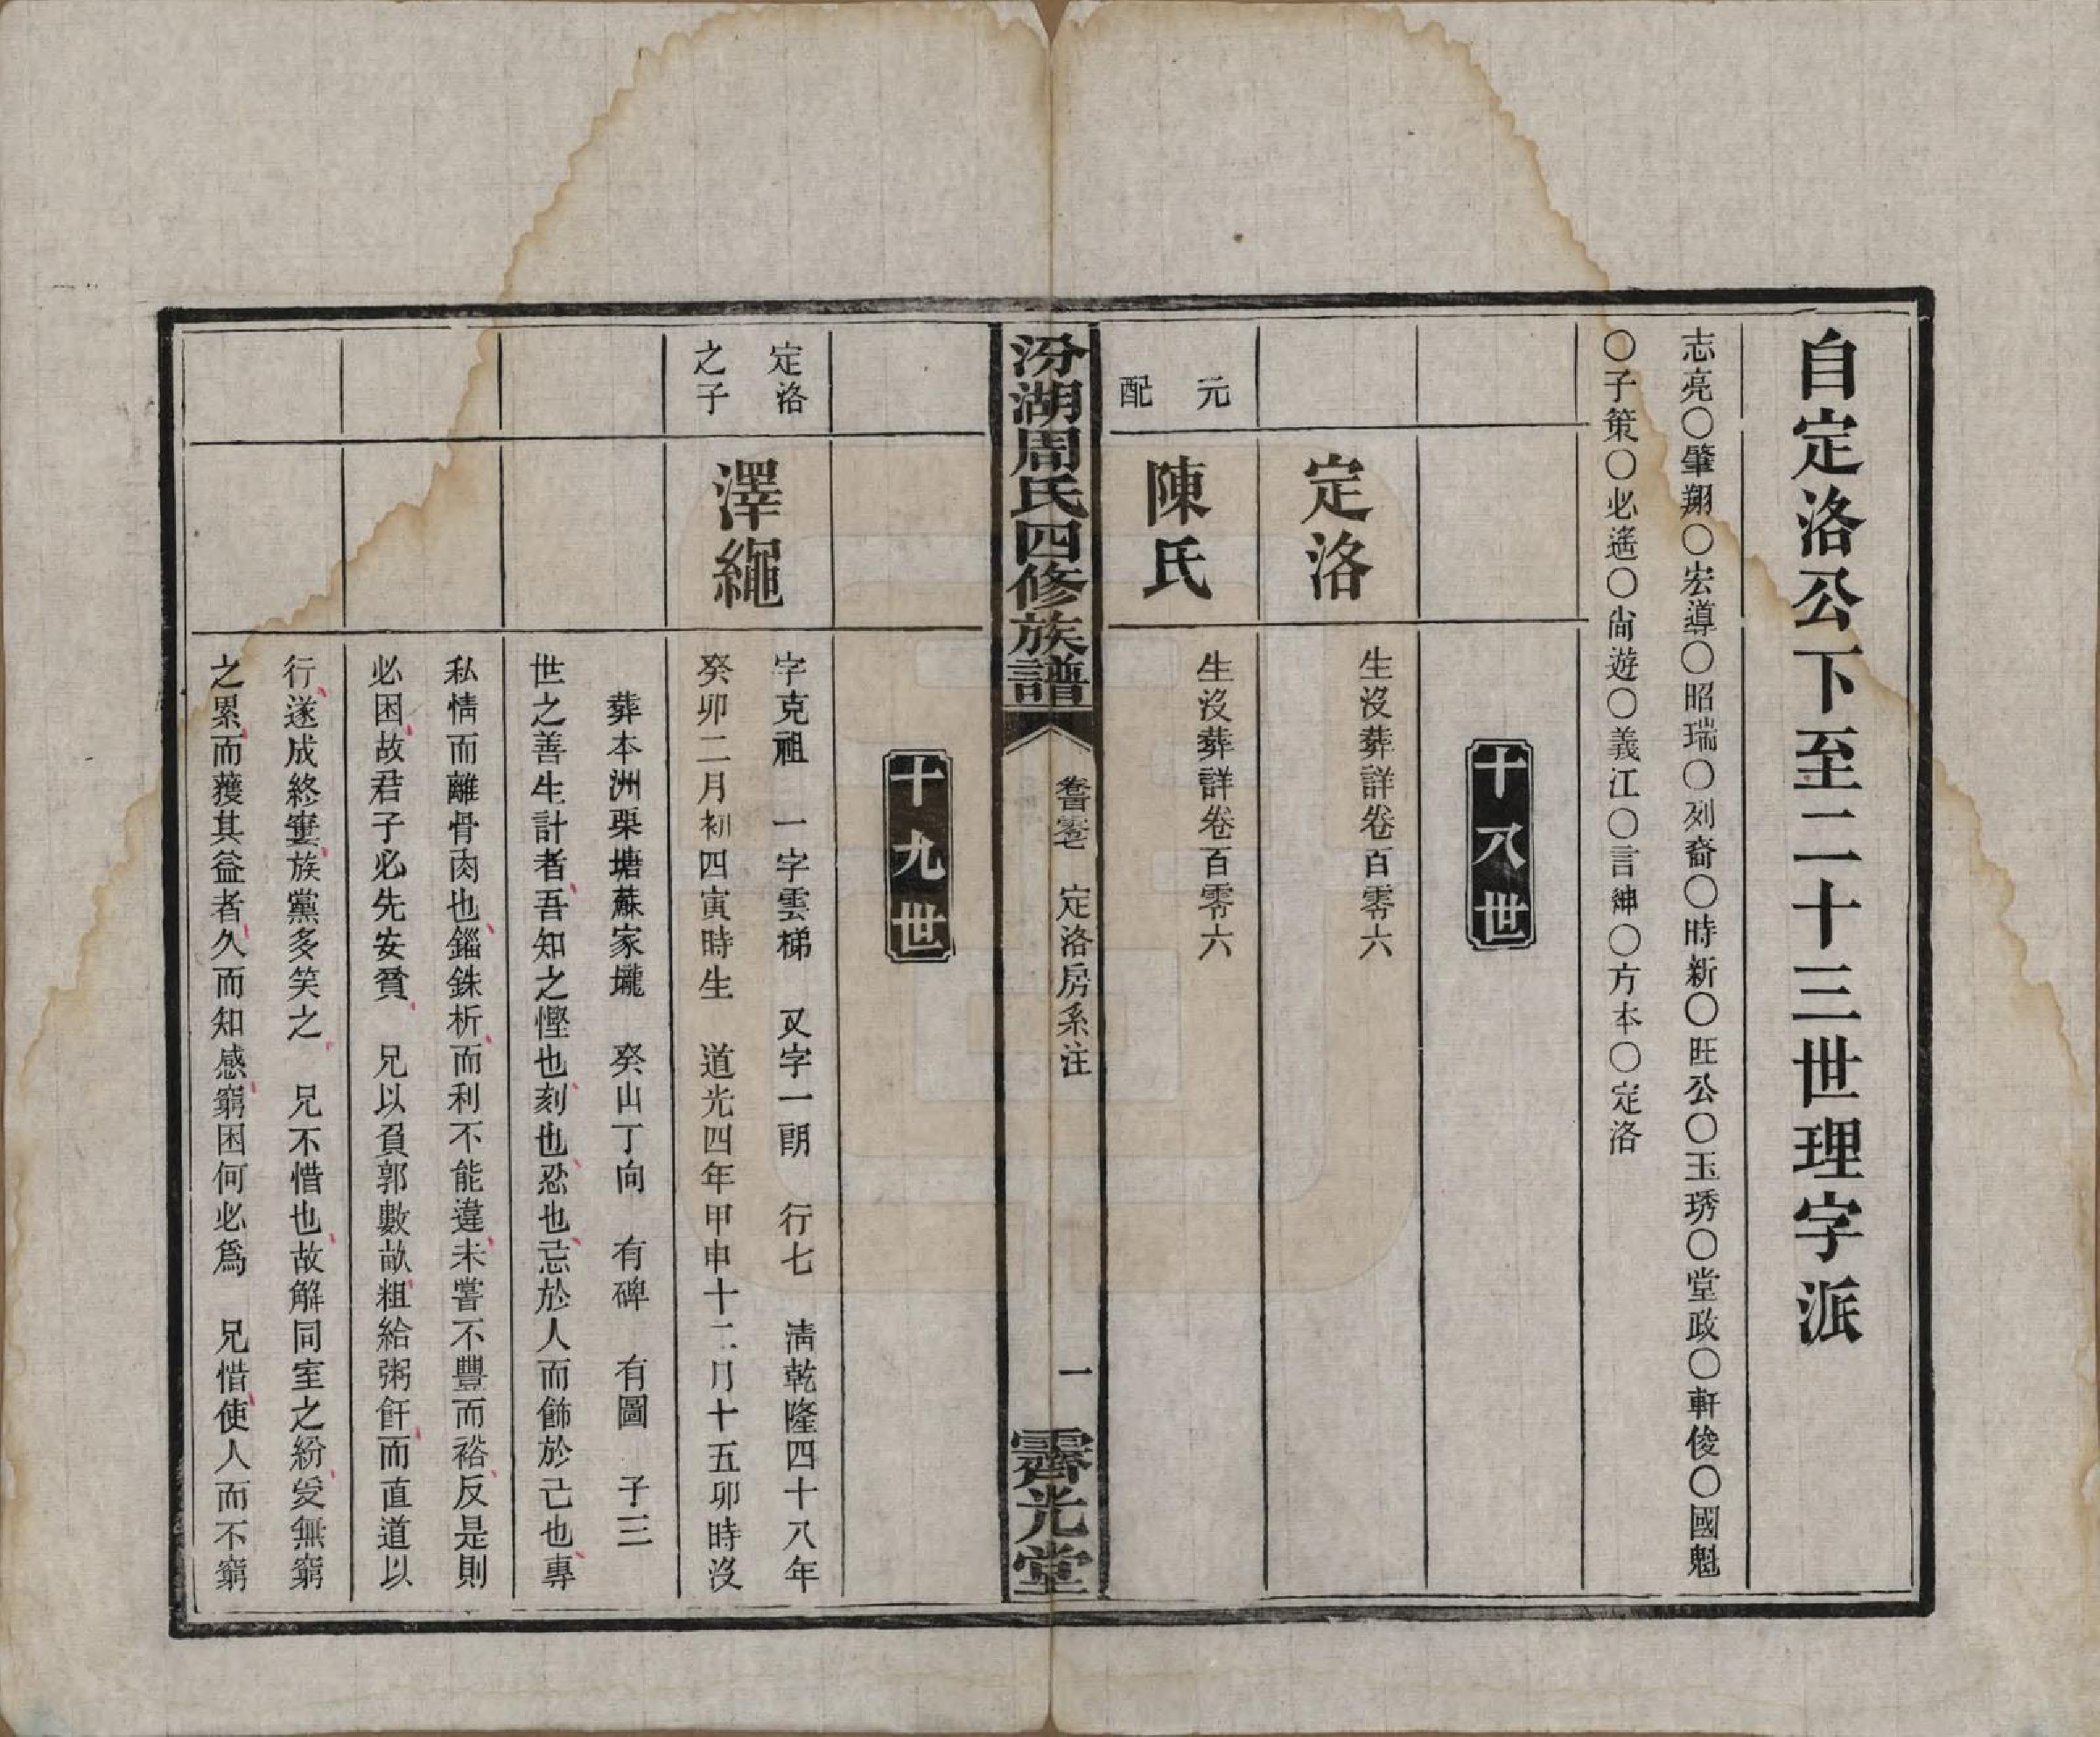 自定洛公下至二十三世理字派
志亮〇肇翔〇宏導〇昭瑞〇列裔〇時新〇旺公〇玉琇〇堂政〇軒俊〇國魁
〇子策〇必遙〇尚遊〇義江〇言紳〇方本〇定洛
十八世
定洛
生沒葬詳卷百零六
元配
陳氏
生沒葬詳卷百零六
汾湖周氏四修族譜
定洛房系注
一
霽光堂
十九世
定洛
之子
澤繩
字克祖 一字雲梯 又字一朗 行七 淸乾隆四十八年
癸卯二月初四寅時生 道光四年甲申十二月十五卯時沒
葬本洲栗塘蘇家壠 癸山丁向 有碑 有圖 子三
世之善生計者吾知之慳也刻也忍也忘於人而餙於己也專
私情而離骨肉也錙銖析而利不能違未嘗不豐而裕反是則
必困故君子必先安貧 兄以負郭數畝粗給粥飦而直道以
行遂成終窶族黨多笑之 兄不惜也故解同室之紛爰無窮
之累而蒦其益者久而知感窮困何必爲 兄惜使人而不窮